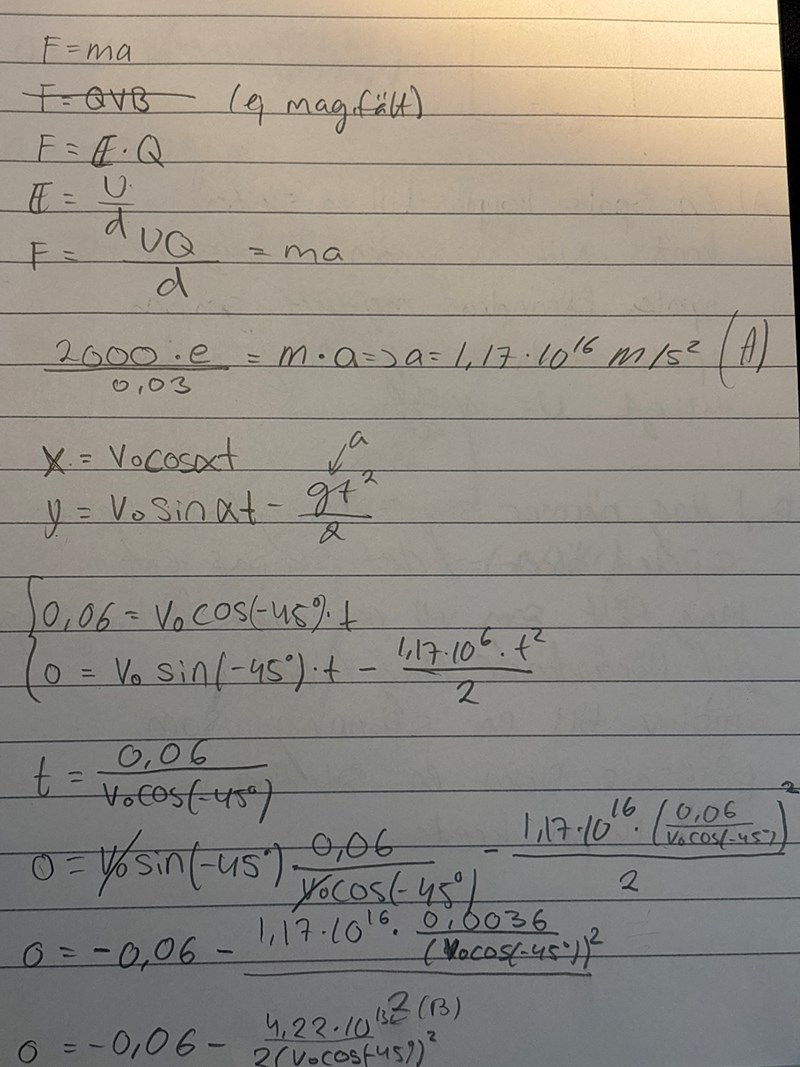 F = ma
F = QVB (ej mag.fält)
F = E · Q
E = U/d
F = UQ/d = ma
2000 · e / 0,03 = m · a => a = 1,17 · 10^16 m/s² (A)
x = V₀cosαt
a
y = V₀ sin αt - gt²/2
0,06 = V₀ cos(-45°) · t
0 = V₀ sin(-45°) · t - 1,17 · 10^6 · t²/2
t = 0,06/(V₀cos(-45°))
0 = V₀ sin(-45°) · 0,06/(V₀cos(-45°)) - 1,17 · 10^16 · (0,06/(V₀cos(-45°)))²/2
0 = -0,06 - 1,17 · 10^16 · 0,0036/(V₀cos(-45°))²/2
0 = -0,06 - 4,22 · 10^13 (B)/2(V₀cos(-45°))²